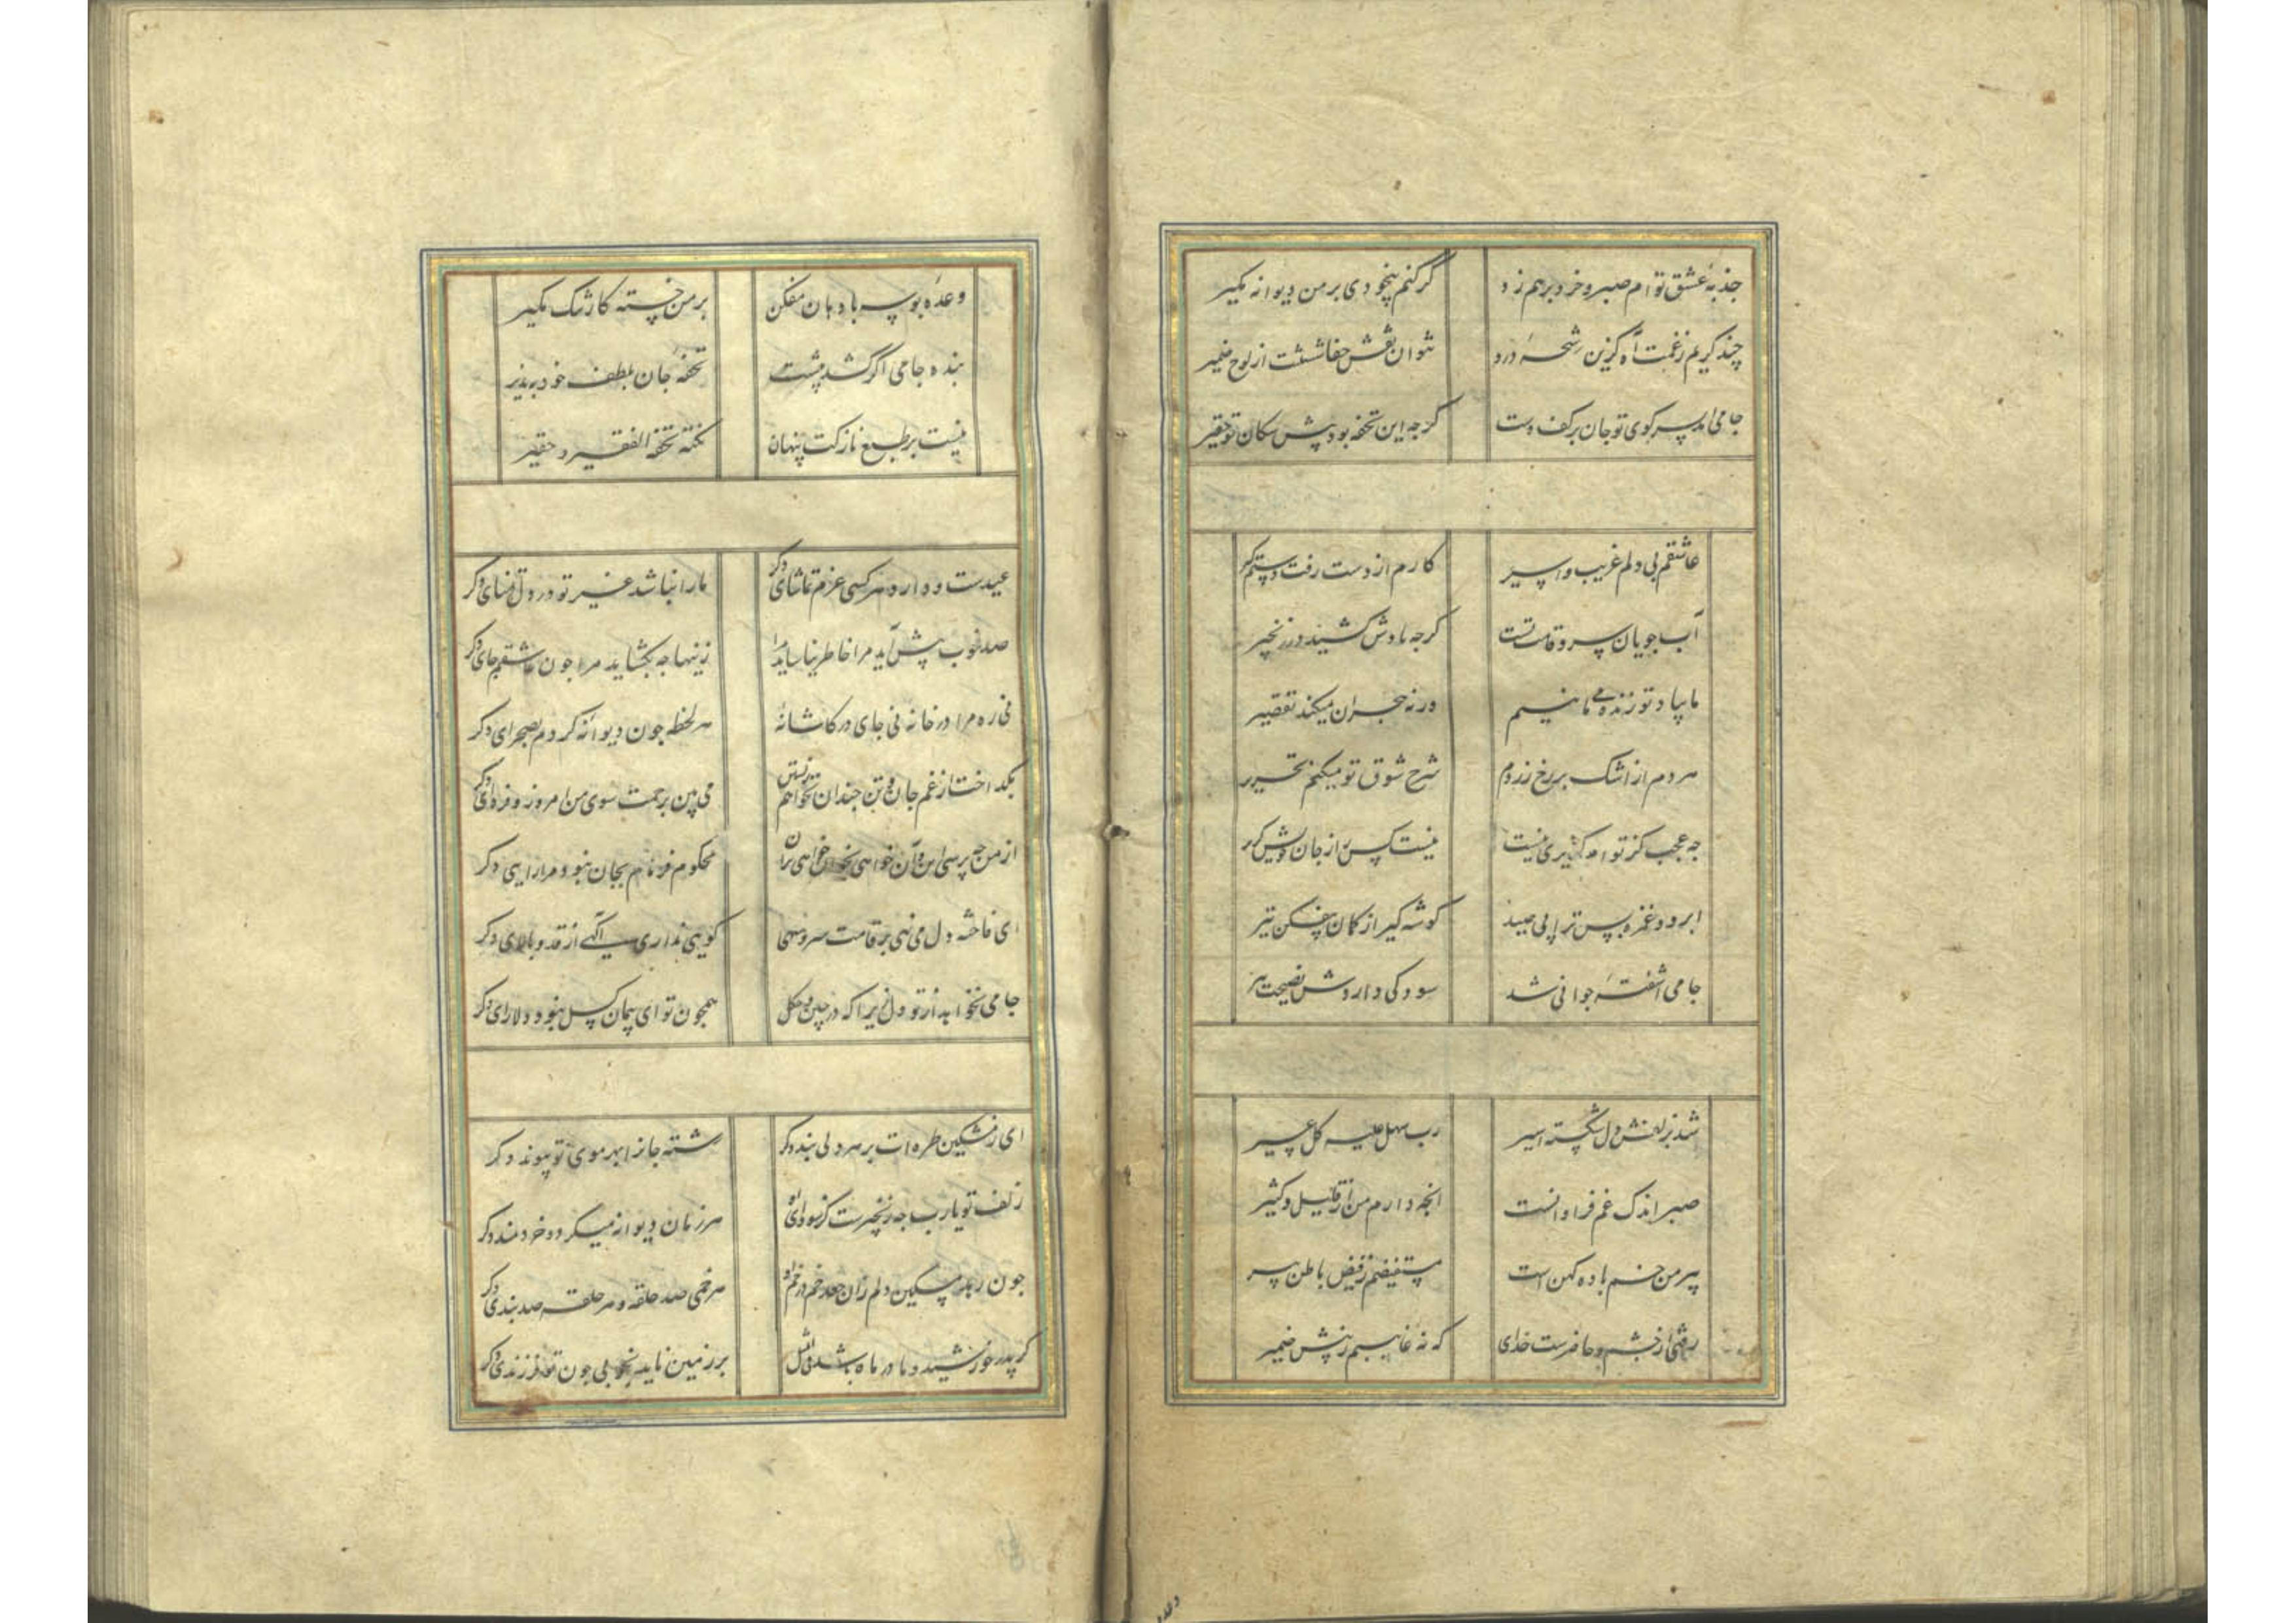 جذبهٔ عشق توام صبر و خرد بر هم زد گر کنم بیخودی بر من دیوانه مگیر
چند گریم ز غمت آه کزین رشحهٔ درد نتوان نقش جفا شست از لوح ضمیر
جامی آمد بسر کوی تو جان بر کف دست کرجه این تحفه بود پیش سکان تو حقیر
عاشقم بی دلم غریب و اسیر کارم از دست رفت دستم گیر
آب جویان سرو قامت تست کرجه بادش کشید در زنجیر
ما بیاد تو زنده می مانیم ورنه هجران میکند تقصیر
هر دم از اشک بر رخ زردم شرح شوق تو میکنم تحریر
جه عجب کز توام گزیری نیست نیست کس را ز جان خویش گزیر
ابرو و غمزه بس ترا پی صید گوشه گیر از کمان بیفکن تیر
جامی آشفتهٔ جوانی شد سود کی داردش نصیحت پیر
شد بزلفش دل شکسته اسیر رب سهل علیه کل عسیر
صبر اندک غم فراوانست انجه دارم من از قلیل و کثیر
پیر من خم باده کهن است مستفیضم ز فیض باطن پیر
رفتی از چشم و حاضرست خدای که نهٔ غایبم ز پیش ضمیر
وعدهٔ بوسه با دهان مفکن بر من خسته کار تنک مگیر
بنده جامی اگر کشد پیشت تحفهٔ جان بلطف خود بپذیر
نیست بر طبع نازکت پنهان نکتهٔ تحفة الفقیر حقیر
عیدست و دارد هر کسی عزم تماشای دکر ما را نباشد غیر تو در دل تمنای دکر
صد خوب پیش آید مرا خاطر نیاساید مرا زینها جه بکشاید مرا جون عاشقم جای دکر
نی ره مرا در خانهٔ نی جای در کاشانهٔ هر لحظه جون دیوانهٔ کردم بصحرای دکر
بگداخت از غم جان و تن جندان نخواهم زیستن می بین برحمت سوی من امروز و فردای دکر
از من جه پرسی این و آن خواهی بخوان خواهی بران محکوم فرمانم بجان نبود مرا رایی دکر
ای فاخته دل می نهی بر قامت سرو سهی کویی نداری آکهی از قد و بالای دکر
جامی نخواهد از تو دل زیرا که در چین و چکل همجون تو ای پیمان کسل نبود دلارای دکر
ای ز مشکین طره ات بر هر دلی بند دکر رشتهٔ جانرا بهر موی تو پیوند دکر
زلف تو یارب جه زنجیرست کز سودای او هر زمان دیوانه میکردد خردمند دکر
جون رهد مسکین دلم زان جعد خم در خم که او هر خمی صد حلقه و هر حلقه صد بندی دکر
کر پدر خورشید و مادر ماه باشد فی المثل بر زمین ناید بخوبی جون تو فرزندی دکر